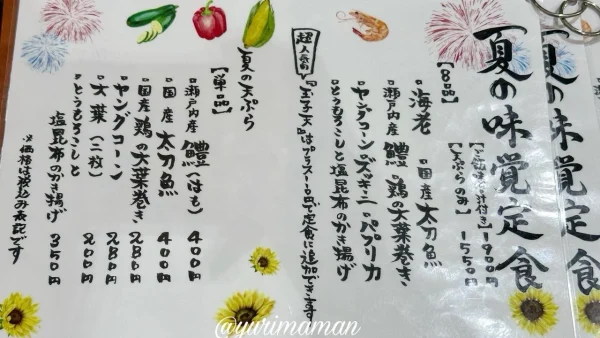 夏の味覚定食
【ご飯・味噌汁付き】1900円
【天ぷらのみ】1550円
【8品】
・海老 ・国産 太刀魚
・瀬戸内産 鱧 ・鶏の大葉巻き
・ヤングコーン・ズッキーニ・パプリカ
・とうもろこしと塩昆布のかき揚げ
超人気の
『玉子天』はプラス110円で定食に追加できます
夏の天ぷら
【単品】
・瀬戸内産 鱧(はも) 400円
・国産 太刀魚 400円
・国産 鶏の大葉巻き 280円
・ヤングコーン 280円
・大葉(二枚) 200円
・とうもろこしと
塩昆布のかき揚げ 350円
※価格は税込み表記です
夏の味覚定食
@yurimaman